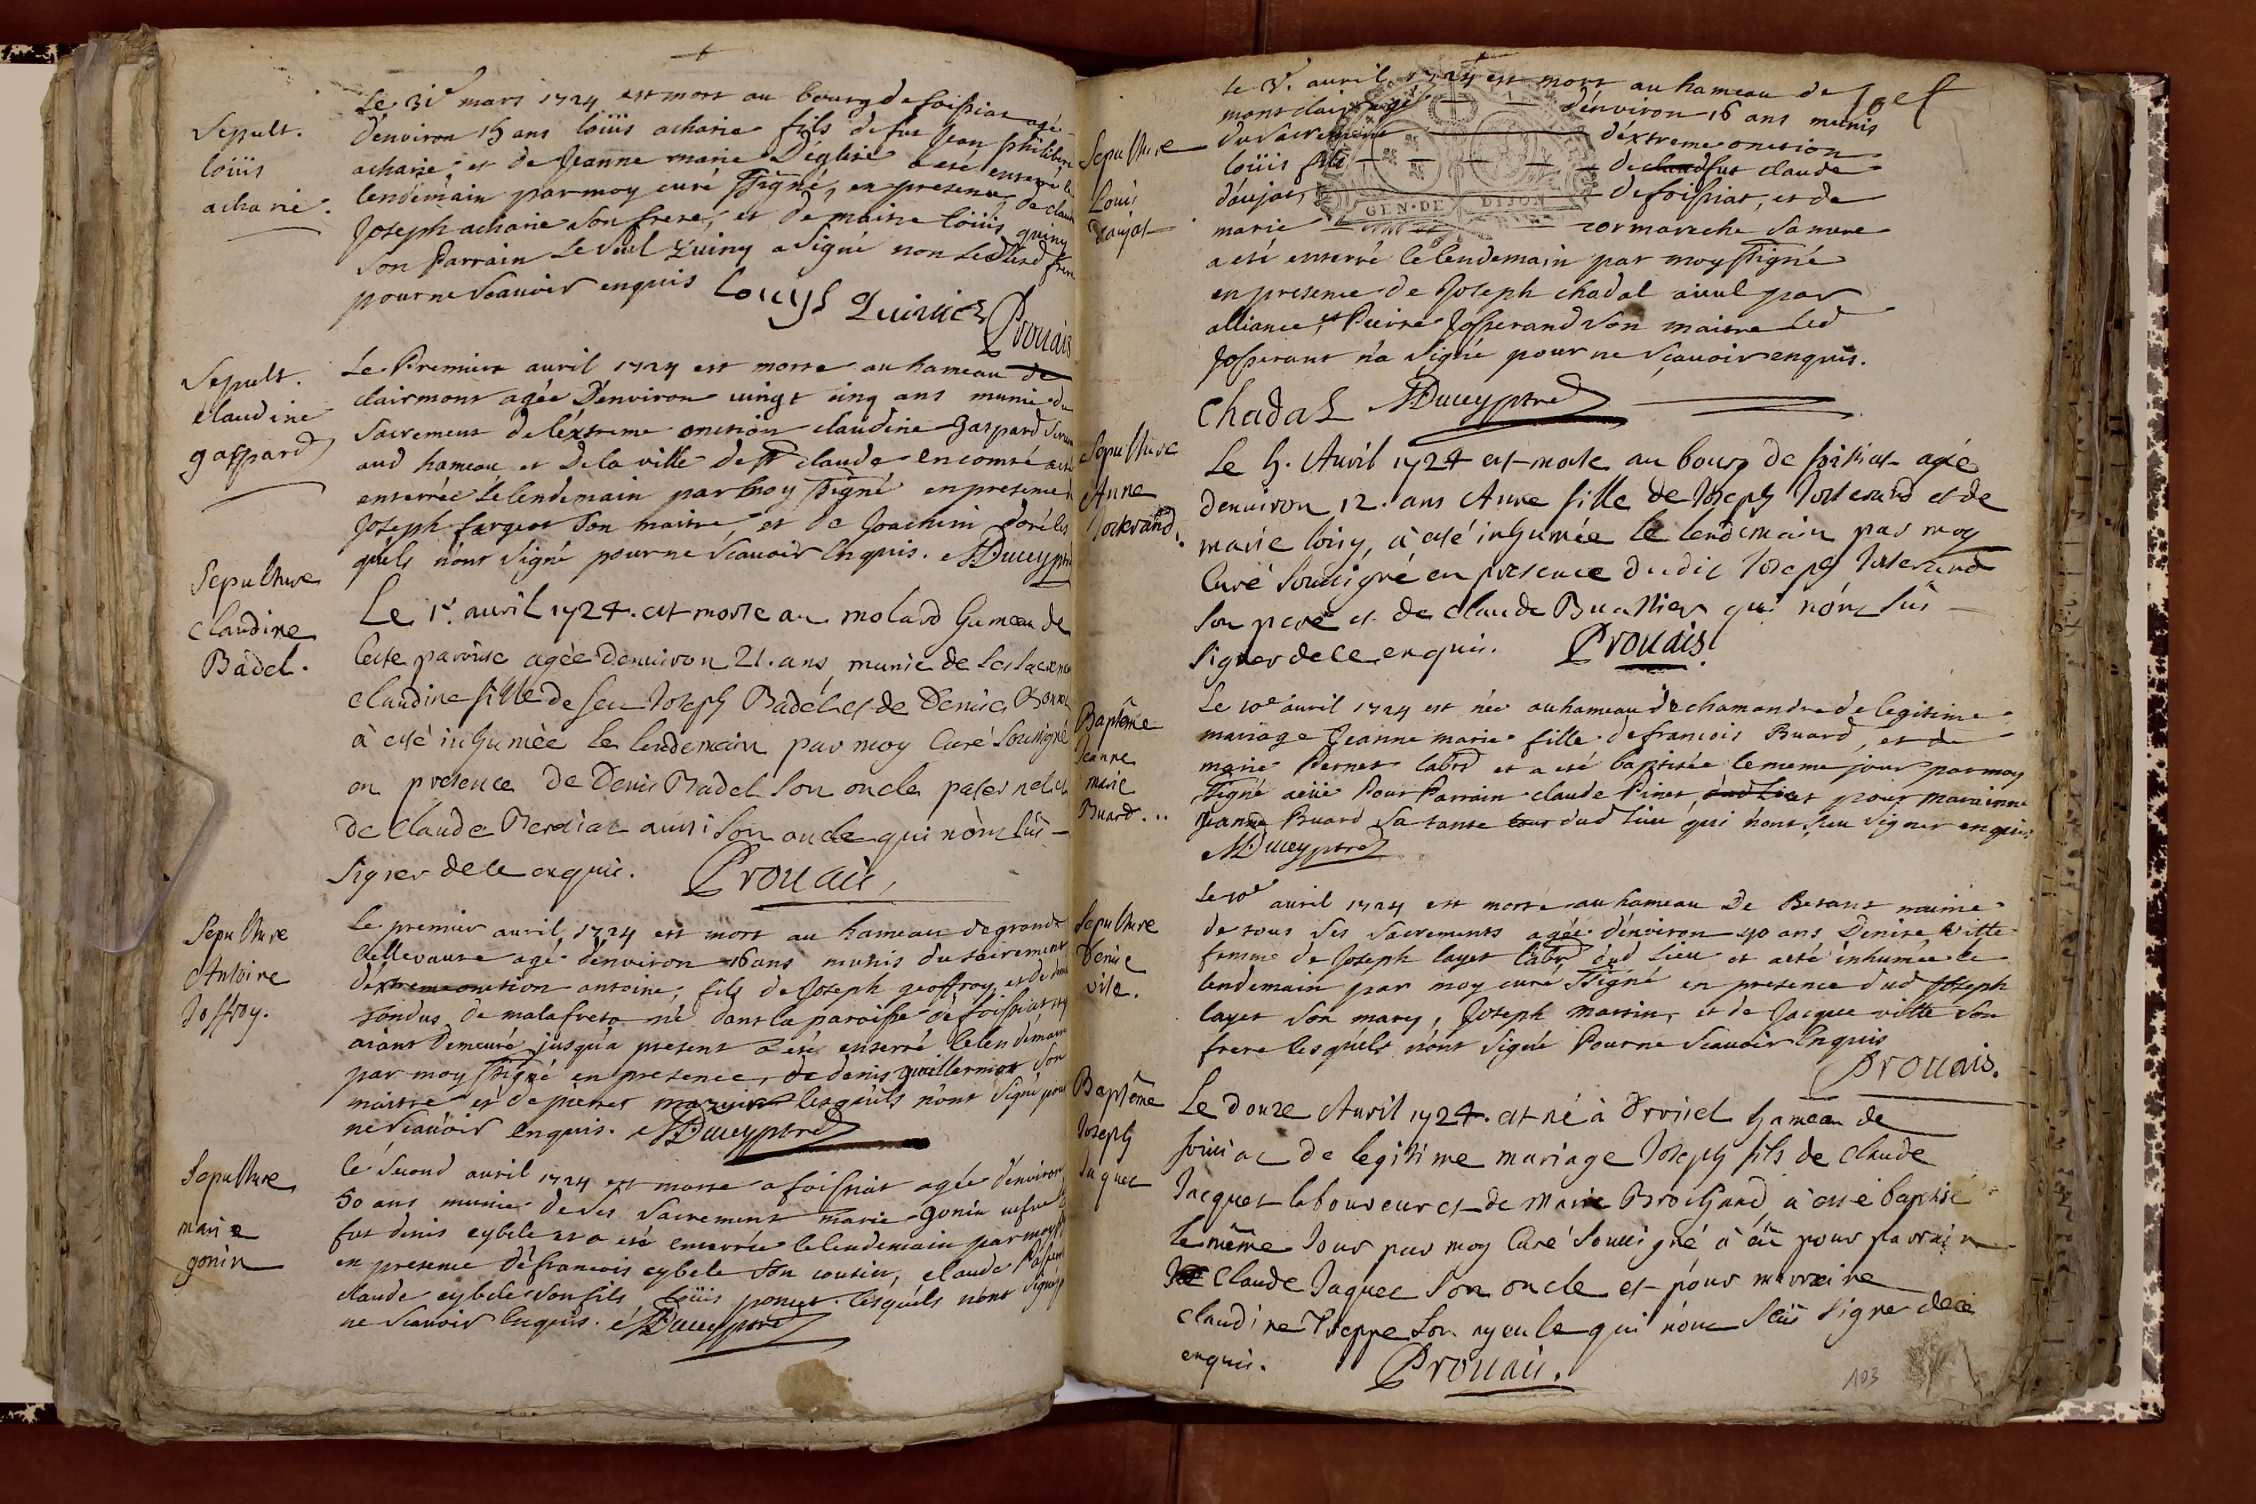 Sepult.
loüis
acharie.
Le 31e mars 1724 est mort au bourg de foissiat agé
d'environ 15 ans loüis acharie fils de fut Jean philibert
acharie, et de Jeanne marie D'eglise a eté enterré le
lendemain par moy curé ssigné, en presence de claude
Joseph acharie son frere, et de maitre loüis quiny
son Parrain le seul quiny a signé non led frere
pour ne scauoir enquis Louys
Prouais
Sepult.
claudine
gaspard
Le Premier auril 1724 est morte au hameau de
clairmont agée D'enuiron uingt cinq ans munie du
Sacrement de l'extreme onction claudine gaspard
aud hameau et De la ville de st claude en comté a eté
enterrée le lendemain par moy ssigné en presence
Joseph fargeot son maitre et de Joachim
quels n'ont signé pour ne scauoir Enquis. Duceyptre
Sepulture
Claudine
Badel.
Le 1r. auril 1724. est morte au molard hameau de
cette paroisse agée denuiron 21. ans, munie de ses sacremen
claudine fille de feu Joseph Badel et de Denise
à esté inhumée le lendemain par moy Curé soussigné
en presence de Denis Badel son oncle paternel et
de Claude Perdrix aussi son oncle qui n'ont sus
signer de ce enquis. Prouais
Sepulture
Antoine
Joffroy.
Le premier auril 1724 est mort au hameau de grande
Cellevaure agé d'enuiron 16 ans munis du sacrement
d'extreme onction antoine, fils de Joseph geoffroy et de
de malafreta né dans la paroisse de foissiat et y
aiant Demeuré jusqu'a present a eté enterré le lendemain
par moy ssigné en presence, de denis guillermot son
maitre et de pierre lesquels n'ont signé pour
ne scauoir Enquis. Duceyptre
Sepulture
marie
gonin
le second auril 1724 est morte a foissiat agée d'enuiron
50 ans munie de ses sacrement marie gonin
fut denis cybele et a eté enterrée le lendemain par moy
en presence de francois cybele son cousin, claude
claude cybele son fils loüis poncet lesquels n'ont signé
ne scauoir Enquis. Duceyptre
Sepulture
Louis
daujat
le 3e. auril 1724 est mort au hameau de
montclair agé d'enuiron 16 ans munis
du sacrement d'extreme onction
loüis fils de fut claude
daujat, de foissiat, et de
marie cormareche sa mere
a eté enterré le lendemain par moy ssigné
en presence de Joseph chadal aieul par
alliance, et Pierre Josserand son maitre led
Josserant n'a signé pour ne scauoir enquis.
GEN. DE DIJON
Chadal Duceyptre
Sepulture
Anne
Josserand.
Le 5. Auril 1724 est morte au bourg de foissiat agée
denuiron 12. ans Anne fille de Joseph Josserand et de
marie loisy, à esté inhumée le lendemain par moy
Curé soussigné en presence dudit Joseph Josserand
son pere et de claude Buathier qui n'ont sus
signer de ce enquis. Prouais.
Baptême
Jeanne
marie
Buard...
Le 10e auril 1724 est née au hameau de chamandre de legitime
mariage Jeanne marie fille de francois Buard, et de
marie Pernet labrd et a eté baptisée le meme jour par moy
ssigné aiüe Pour Parrain claude Pinet, et pour marainne
Jeanne Buard sa tante dud lieu qui n'ont sceu signer enquis
Duceyptre
Sepulture
Denise
vite.
Le 10e auril 1724 est morte au hameau De Besant munie
de tous ses sacrements agée d'enuiron 40 ans Denise vitte
femme de Joseph layet labrd dud lieu et a eté inhumée le
lendemain par moy curé ssigné en presence dud Joseph
layet son mary, Joseph martin, et de Jacque vitte son
frere lesquels n'ont signé Pour ne scauoir Enquis
Prouais.
Baptême
Joseph
Jaquet
Le douze Auril 1724. est né à hameau de
foissiac de legitime mariage Joseph fils de claude
Jacquet laboureur et de Marie Brochard à esté baptisé
le même Jour par moy Curé soussigné à eü pour parrain
Claude Jaquet son oncle et pour marraine
Claudine son ayeule qui n'ont sceü signer de ce
enquis. Prouais.
103